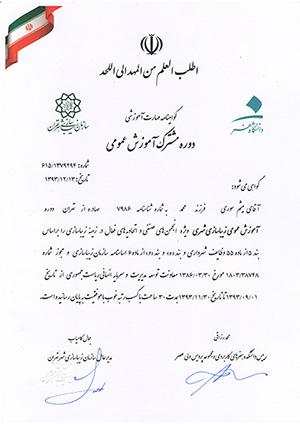 اطلب العلم من المهد الی اللحد
گواهینامه مهارت آموزشی
دوره مشترک آموزش عمومی
دانشگاه هنر
سازمان زیباسازی شهر تهران
شماره: ۶۱۵/۱۳۷۹۲۹۴
تاریخ: ۱۳۹۳/۱۲/۱۳
گواهی می شود:
آقای میثم سوری فرزند محمد به شماره شناسنامه ۷۹۸۶ صادره از تهران دوره
آموزش عمومی زیباسازی شهری ویژه انجمن‌های صنفی و اتحادیه‌های فعال در زمینه زیباسازی را براساس
بند ۵ از ماده ۵۵ وظایف شهرداری و بند «د» و بند «ه» از ماده ۶ اساسنامه سازمان زیباسازی و مجوز شماره
۱۸۰۳/۳۸۷۴۸ مورخ ۱۳۸۶/۰۳/۳۰ معاونت توسعه مدیریت و سرمایه انسانی ریاست جمهوری از تاریخ
۱۳۹۳/۰۹/۰۱ تا تاریخ ۱۳۹۳/۱۱/۳۰ بمدت ۳۰ ساعت با کسب رتبه خوب با موفقیت به پایان رسانیده است.
محمد رزاقی
رییس دانشکده هنرهای کاربردی و مجموعه پردیس ولی عصر
جمال کامیاب
مدیرعامل سازمان زیباسازی شهر تهران